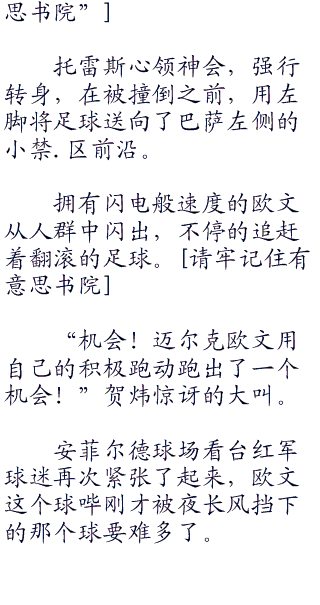 思书院”]
托雷斯心领神会，强行
转身，在被撞倒之前，用左
脚将足球送向了巴萨左侧的
小禁.区前沿。
拥有闪电般速度的欧文
从人群中闪出，不停的追赶
着翻滚的足球。[请牢记住有
意思书院]
“机会！迈尔克欧文用
自己的积极跑动跑出了一个
机会！”贺炜惊讶的大叫。
安菲尔德球场看台红军
球迷再次紧张了起来，欧文
这个球哔刚才被夜长风挡下
的那个球要难多了。